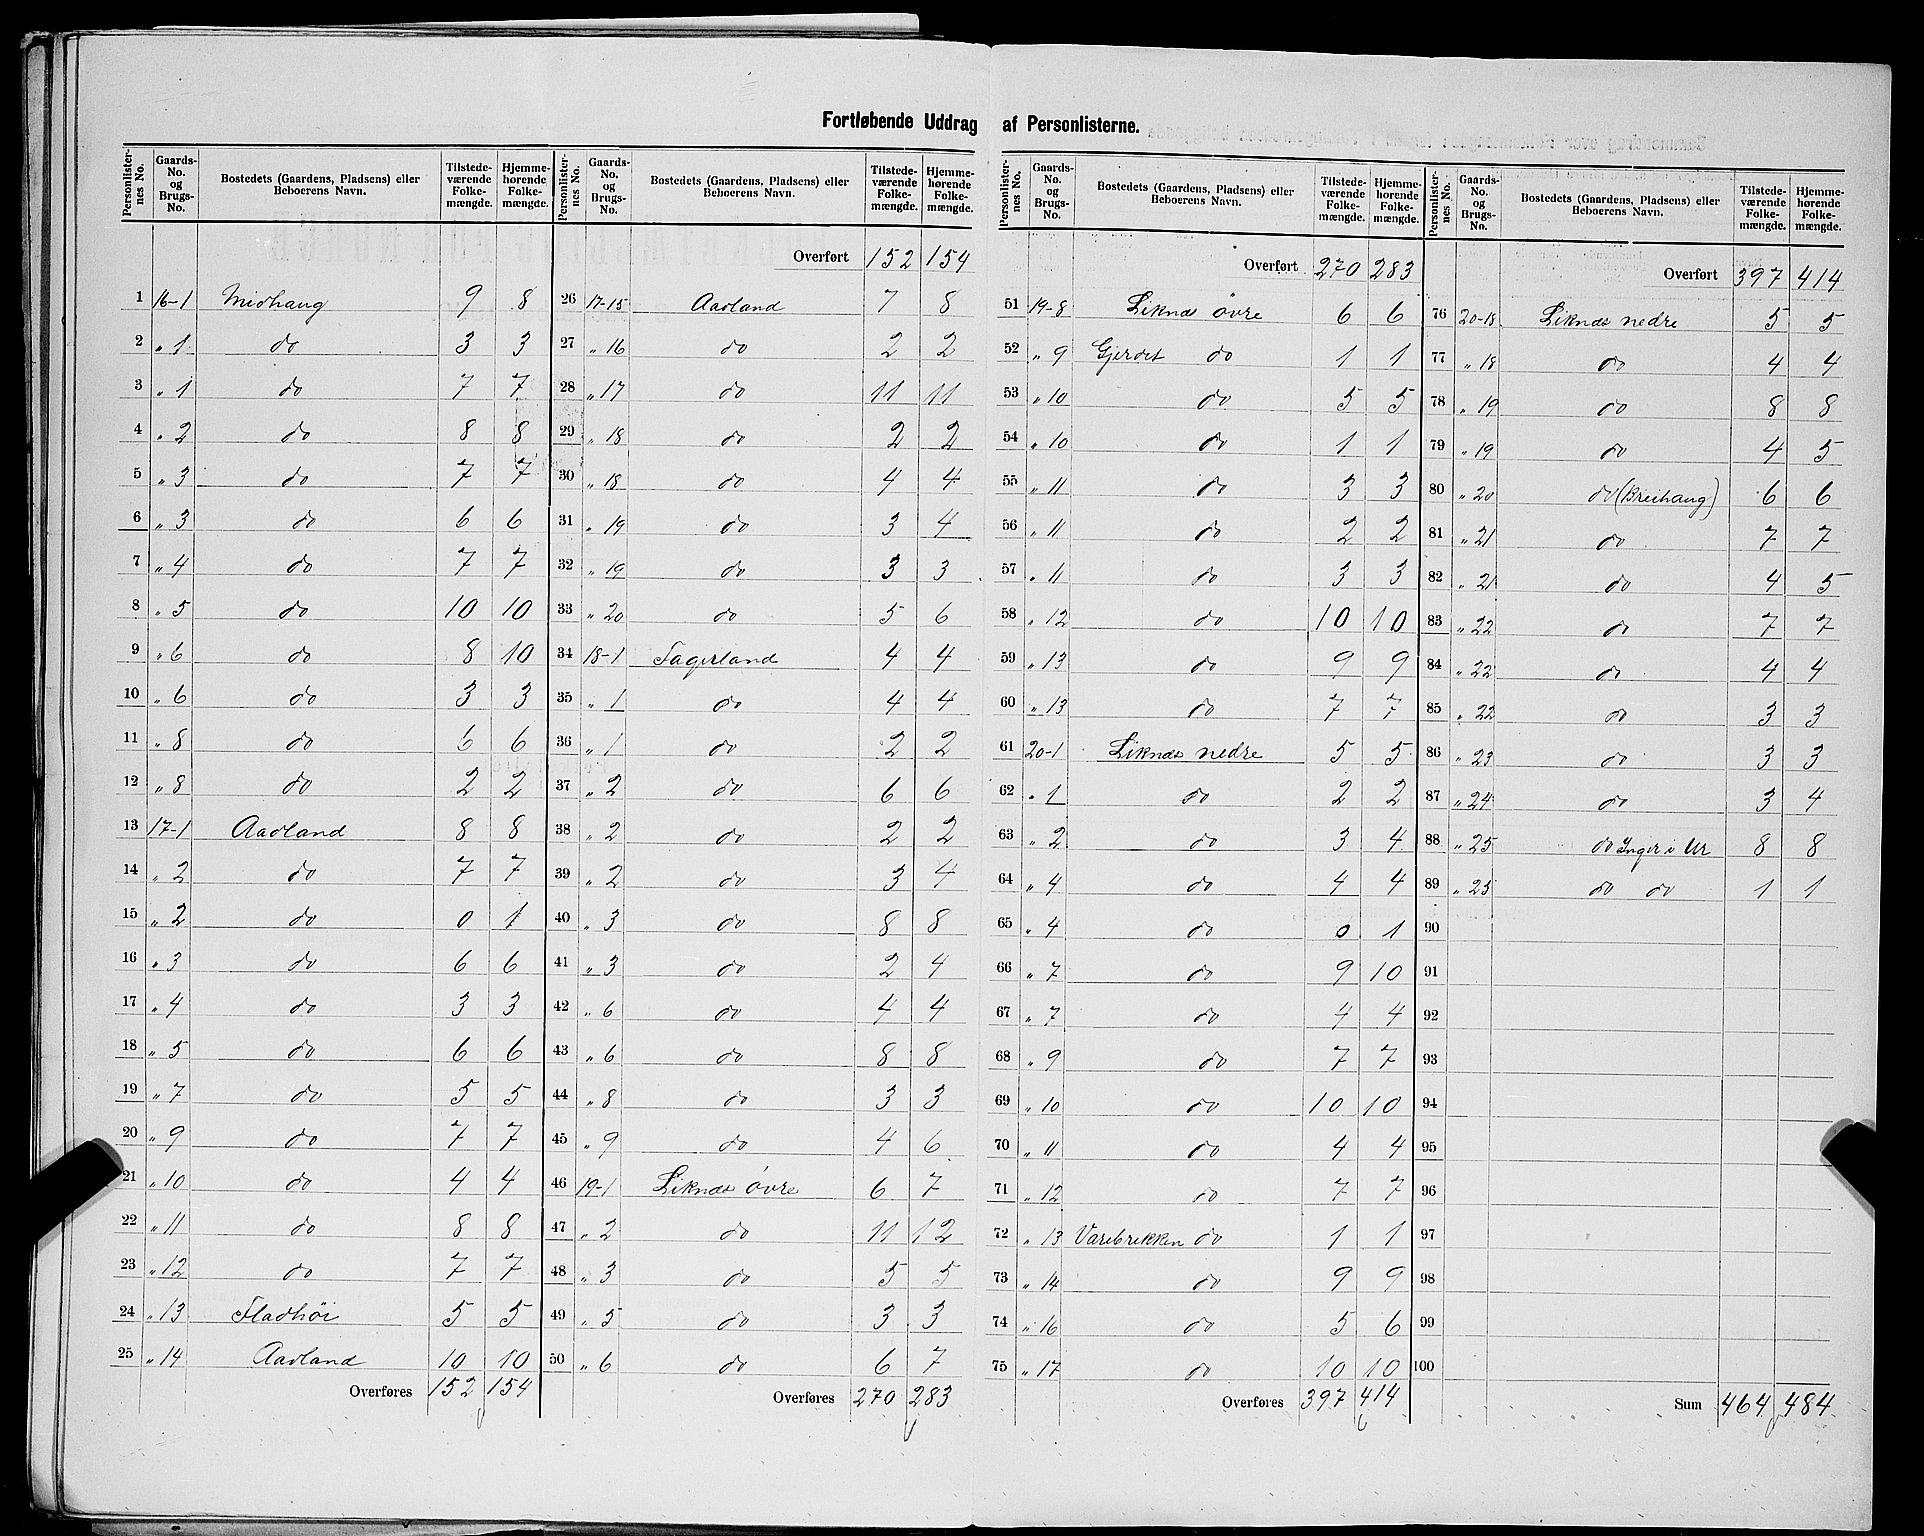 Fortløbende Uddrag af Personlisterne.
Personlister-nes No. | Gaards-No. og Brugs-No. | Bostedets (Gaardens, Pladsens) eller Beboerens Navn. | Tilstede-værende Folke-mængde. | Hjemme-hørende Folke-mængde.
1 16-1 Midhaug 9 8
2 " 1 do 3 3
3 " 1 do 7 7
4 " 2 do 8 8
5 " 3 do 7 7
6 " 3 do 6 6
7 " 4 do 7 7
8 " 5 do 10 10
9 " 6 do 8 10
10 " 6 do 3 3
11 " 8 do 6 6
12 " 8 do 2 2
13 17-1 Aadland 8 8
14 " 2 do 7 7
15 " 2 do 0 1
16 " 3 do 6 6
17 " 4 do 3 3
18 " 5 do 6 6
19 " 7 do 5 5
20 " 9 do 7 7
21 " 10 do 4 4
22 " 11 do 8 8
23 " 12 do 7 7
24 " 13 Fladhöi 5 5
25 " 14 Aadland 10 10
Overføres 152 154
Personlister-nes No. | Gaards-No. og Brugs-No. | Bostedets (Gaardens, Pladsens) eller Beboerens Navn. | Tilstede-værende Folke-mængde. | Hjemme-hørende Folke-mængde.
Overført 152 154
26 17-15 Aadland 7 8
27 " 16 do 2 2
28 " 17 do 11 11
29 " 18 do 2 2
30 " 18 do 4 4
31 " 19 do 3 4
32 " 19 do 3 3
33 " 20 do 5 6
34 18-1 Fagerland 4 4
35 " 1 do 4 4
36 " 1 do 2 2
37 " 2 do 6 6
38 " 2 do 2 2
39 " 2 do 3 4
40 " 3 do 8 8
41 " 3 do 2 4
42 " 6 do 4 4
43 " 6 do 8 8
44 " 8 do 3 3
45 " 9 do 4 6
46 19-1 Liknæs övre 6 7
47 " 2 do 11 12
48 " 3 do 5 5
49 " 5 do 3 3
50 " 6 do 6 7
Overføres 270 283
Personlister-nes No. | Gaards-No. og Brugs-No. | Bostedets (Gaardens, Pladsens) eller Beboerens Navn. | Tilstede-værende Folke-mængde. | Hjemme-hørende Folke-mængde.
Overført 270 283
51 19-8 Liknæs övre 6 6
52 " 9 Gjerdet do 1 1
53 " 10 do 5 5
54 " 10 do 1 1
55 " 11 do 3 3
56 " 11 do 2 2
57 " 11 do 3 3
58 " 12 do 10 10
59 " 13 do 9 9
60 " 13 do 7 7
61 20-1 Liknæs nedre 5 5
62 " 1 do 2 2
63 " 2 do 3 4
64 " 4 do 4 4
65 " 4 do 0 1
66 " 7 do 9 10
67 " 7 do 4 4
68 " 9 do 7 7
69 " 10 do 10 10
70 " 11 do 4 4
71 " 12 do 7 7
72 " 13 Varebrekken do 1 1
73 " 14 do 9 9
74 " 16 do 5 6
75 " 17 do 10 10
Overføres 397 414
Personlister-nes No. | Gaards-No. og Brugs-No. | Bostedets (Gaardens, Pladsens) eller Beboerens Navn. | Tilstede-værende Folke-mængde. | Hjemme-hørende Folke-mængde.
Overført 397 414
76 20-18 Liknæs nedre 5 5
77 " 18 do 4 4
78 " 19 do 8 8
79 " 19 do 4 5
80 " 20 do (Breihaug) 6 6
81 " 21 do 7 7
82 " 21 do 4 5
83 " 22 do 7 7
84 " 22 do 4 4
85 " 22 do 3 3
86 " 23 do 3 3
87 " 24 do 3 4
88 " 25 do Inger i Ur 8 8
89 " 25 do do 1 1
90
91
92
93
94
95
96
97
98
99
100
Sum 464 484